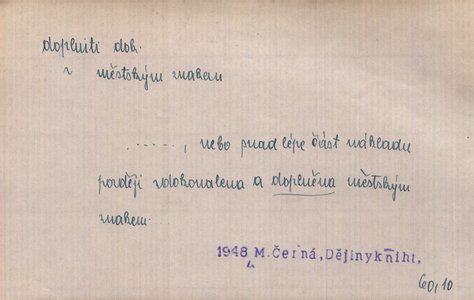 doplniti dok.
v městským znakem
....., nebo snad lépe část nákladu
později zdokonalena a doplněna městským
znakem
1948 M. Černá, Dějinykniht,
60,10